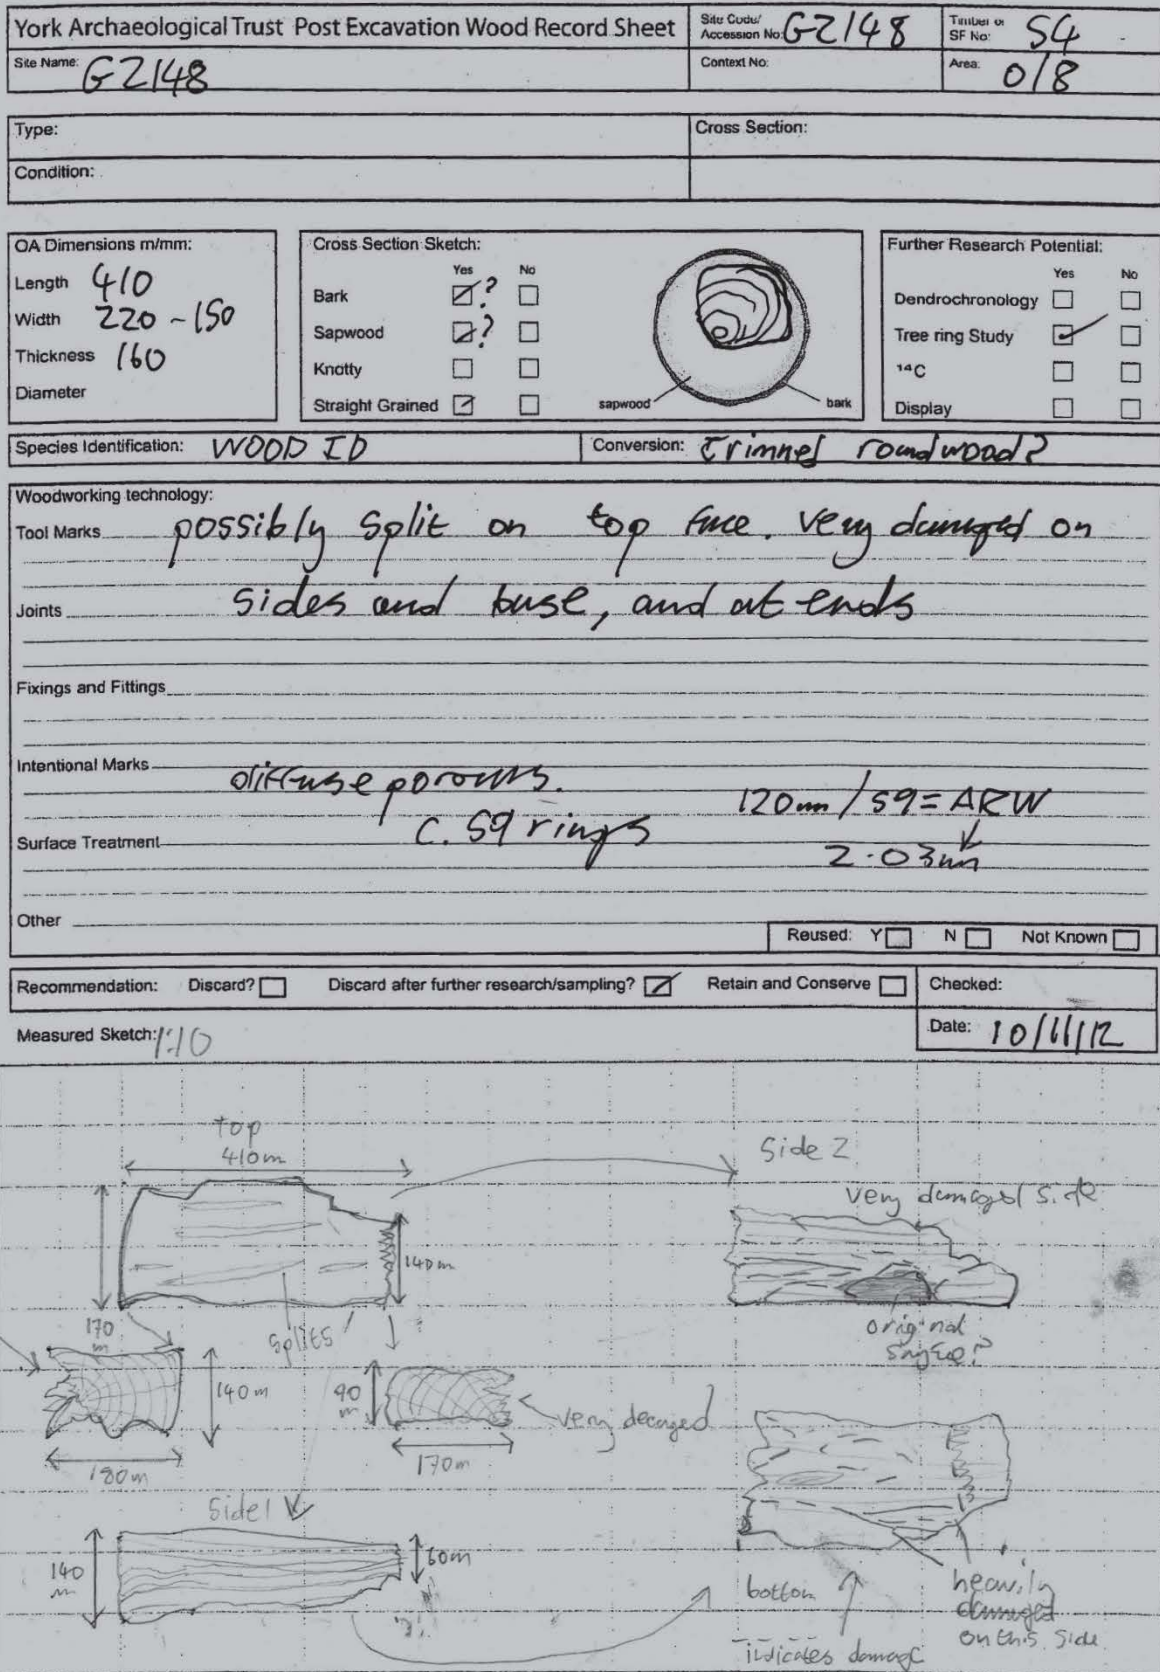 York Archaeological Trust Post Excavation Wood Record Sheet
Site Code/ Accession No: GZ148
Timber or SF No: S4
Site Name: GZ148
Context No:
Area: 0/8
Type:
Cross Section:
Condition:
OA Dimensions m/mm:
Length 410
Width 220 - 150
Thickness 160
Diameter
Cross Section Sketch:
Yes No
Bark ?
Sapwood ?
Knotty
Straight Grained
sapwood
bark
Further Research Potential:
Yes No
Dendrochronology
Tree ring Study
14C
Display
Species Identification: WOOD ID
Conversion: Trimmed roundwood?
Woodworking technology:
Tool Marks possibly split on top face. very damaged on
Joints sides and base, and at ends
Fixings and Fittings
Intentional Marks
diffuse porous.
c. 59 rings
120mm / 59 = ARW
2.03mm
Surface Treatment
Other
Reused: Y N Not Known
Recommendation: Discard? Discard after further research/sampling? Retain and Conserve
Checked:
Measured Sketch: 1:10
Date: 10/11/12
top
410m
Side 2
very damaged side
140m
170 m
splits
original surface?
140m
90 m
very decayed
180m
170m
Side 1
140 m
60m
bottom
indicates damage
heavily
damaged
on this side